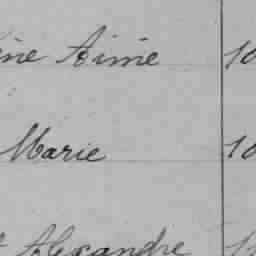 ine Aimé 10
Marie 10
Alexandre